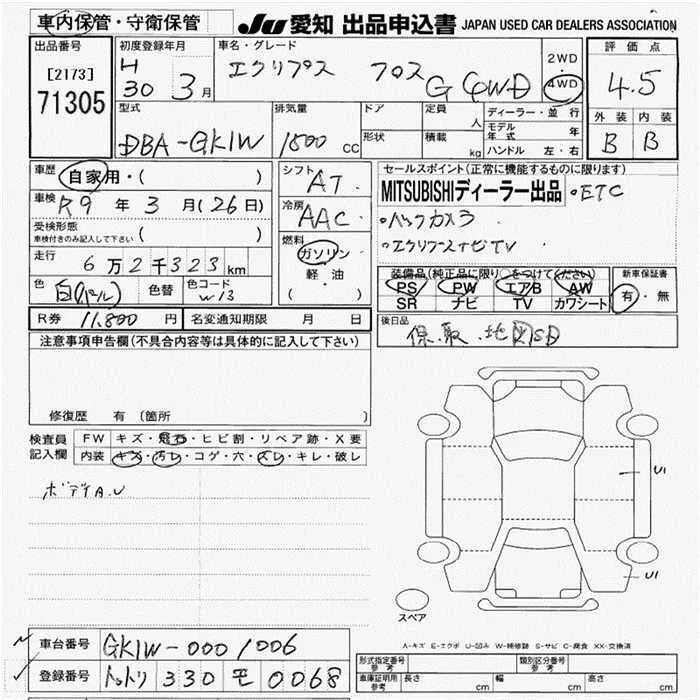 車内保管・守衛保管 JU 愛知 出品申込書 JAPAN USED CAR DEALERS ASSOCIATION
出品番号
[2173]
71305
初度登録年月
H
30 3月
車名・グレード
エクリプス クロス G (4WD)
2WD
4WD
評価点
4.5
外装 内装
B B
型式
DBA-GK1W
排気量
1500 cc
ドア
形状
定員 人
積載 kg
ディーラー・並行
モデル年式 年
ハンドル 左・右
車歴 自家用・( )
車検 R9 年 3 月(26日)
受検形態
車検付きのみ記入して下さい ( )
走行 6万2千323km
色 白(パール) 色替 色コード W13
シフト AT
冷房 AAC
燃料
ガソリン
軽・油
( )
セールスポイント(正常に機能するものに限ります)
MITSUBISHIディーラー出品 ・ETC
・バックカメラ
・エクリプスナビTV
装備品(純正品に限り○をつけてください)
PS PW エアB AW
SR ナビ TV カワシート
新車保証書
有・無
R券 11,800円 名変通知期限 月 日
後日品
保.取.地図SD
注意事項申告欄(不具合内容等は具体的に記入して下さい)
修復歴 有(箇所
検査員
記入欄
FW キズ・飛石・ヒビ割・リペア跡・X要
内装 キズ・汚レ・コゲ・穴・スレ・キレ・破レ
ボデイA.U
U1
U1
スペア
A-キズ E-エクボ U-凹み W-補修跡 S-サビ C-腐食 XX-交換済
車台番号 GK1W-0001006
登録番号 トットリ 330 モ 0068
形式指定番号
参考
類別区分番号
参考
車庫証明用
参考
長さ cm 幅 cm 高さ cm